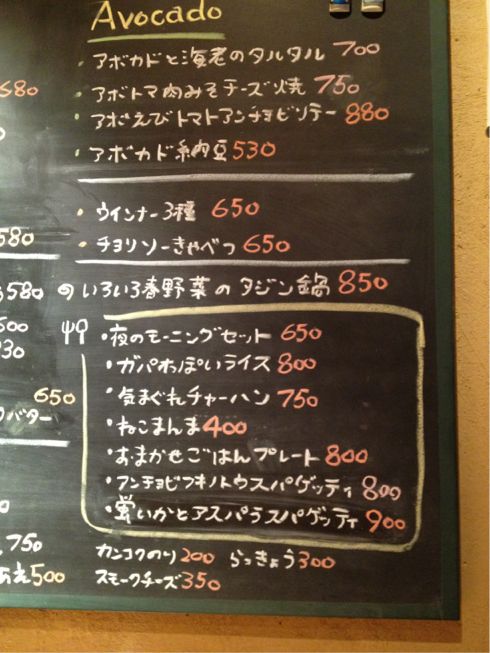 Avocado
・アボカドと海老のタルタル 700
680
・アボトマ肉みそチーズ焼 750
・アボえびトマトアンチョビソテー 880
・アボカド納豆 530
・ウインナー3種 650
580
・チョリソーきゃべつ 650
580
のいろいろ春野菜のタジン鍋 850
・夜のモーニングセット 650
・ガパオっぽいライス 800
・気まぐれチャーハン 750
650
バター
・ねこまんま 400
・おまかせごはんプレート 800
・アンチョビフキノトウスパゲッティ 800
・蛍いかとアスパラスパゲッティ 900
750
カンコクのり 200 らっきょう 300
あえ 500
スモークチーズ 350